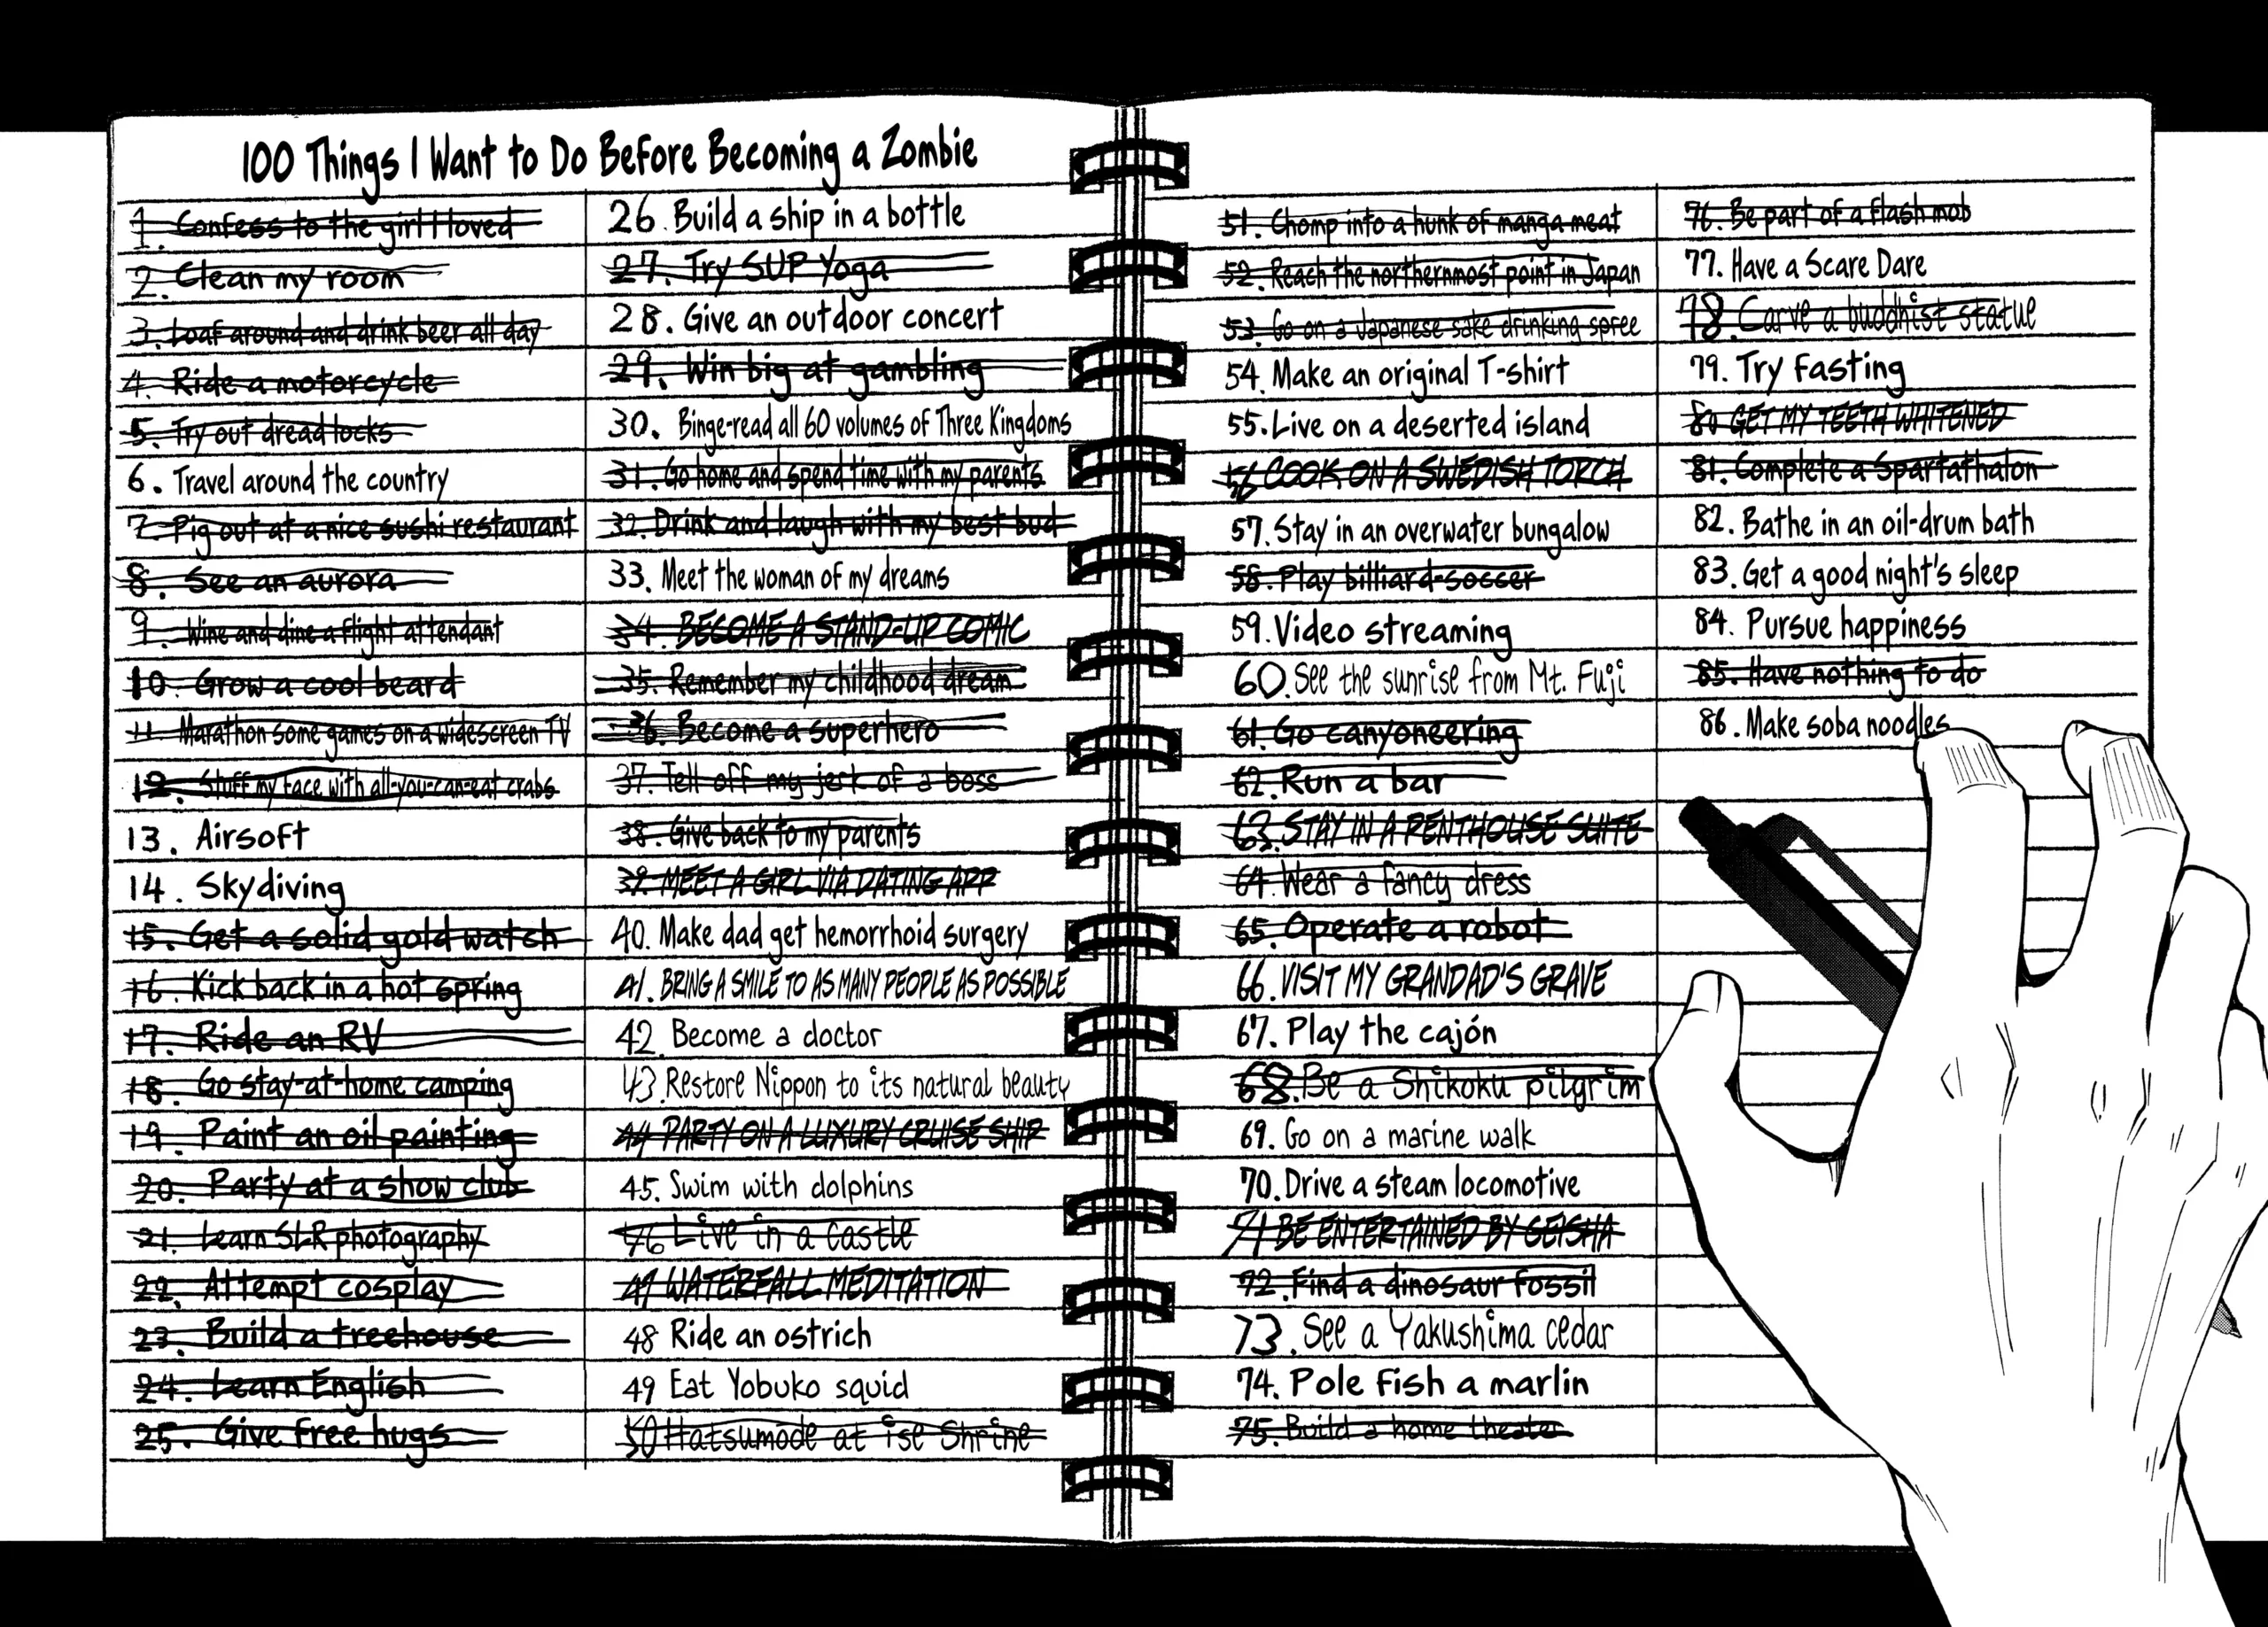 100 Things I Want to Do Before Becoming a Zombie
1. Confess to the girl I loved
2. Clean my room
3. Loaf around and drink beer all day
4. Ride a motorcycle
5. Try out dreadlocks
6. Travel around the country
7. Pig out at a nice sushi restaurant
8. See an aurora
9. Wine and dine a flight attendant
10. Grow a cool beard
11. Marathon some games on a widescreen TV
12. Stuff my face with all-you-can-eat crabs
13. Airsoft
14. Skydiving
15. Get a solid gold watch
16. Kick back in a hot spring
17. Ride an RV
18. Go stay-at-home camping
19. Paint an oil painting
20. Party at a show club
21. Learn SLR photography
22. Attempt cosplay
23. Build a treehouse
24. Learn English
25. Give free hugs
26. Build a ship in a bottle
27. Try SUP Yoga
28. Give an outdoor concert
29. Win big at gambling
30. Binge-read all 60 volumes of Three Kingdoms
31. Go home and spend time with my parents
32. Drink and laugh with my best bud
33. Meet the woman of my dreams
34. BECOME A STAND-UP COMIC
35. Remember my childhood dream
36. Become a superhero
37. Tell off my jerk of a boss
38. Give back to my parents
39. MEET A GIRL VIA DATING APP
40. Make dad get hemorrhoid surgery
41. BRING A SMILE TO AS MANY PEOPLE AS POSSIBLE
42. Become a doctor
43. Restore Nippon to its natural beauty
44 PARTY ON A LUXURY CRUISE SHIP
45. Swim with dolphins
46 Live in a castle
47 WATERFALL MEDITATION
48 Ride an ostrich
49 Eat Yobuko squid
50 Hatsumode at Ise Shrine
51. Chomp into a hunk of manga meat
52. Reach the northernmost point in Japan
53. Go on a Japanese sake drinking spree
54. Make an original T-shirt
55. Live on a deserted island
56 COOK ON A SWEDISH TORCH
57. Stay in an overwater bungalow
58. Play billiard-soccer
59. Video streaming
60. See the sunrise from Mt. Fuji
61. Go canyoneering
62. Run a bar
63. STAY IN A PENTHOUSE SUITE
64. Wear a fancy dress
65. Operate a robot
66. VISIT MY GRANDAD'S GRAVE
67. Play the cajón
68. Be a Shikoku pilgrim
69. Go on a marine walk
70. Drive a steam locomotive
71 BE ENTERTAINED BY GEISHA
72. Find a dinosaur fossil
73. See a Yakushima cedar
74. Pole fish a marlin
75. Build a home theater
76. Be part of a flash mob
77. Have a Scare Dare
78. Carve a buddhist statue
79. Try fasting
80 GET MY TEETH WHITENED
81. Complete a Spartathalon
82. Bathe in an oil-drum bath
83. Get a good night's sleep
84. Pursue happiness
85. Have nothing to do
86. Make soba noodles